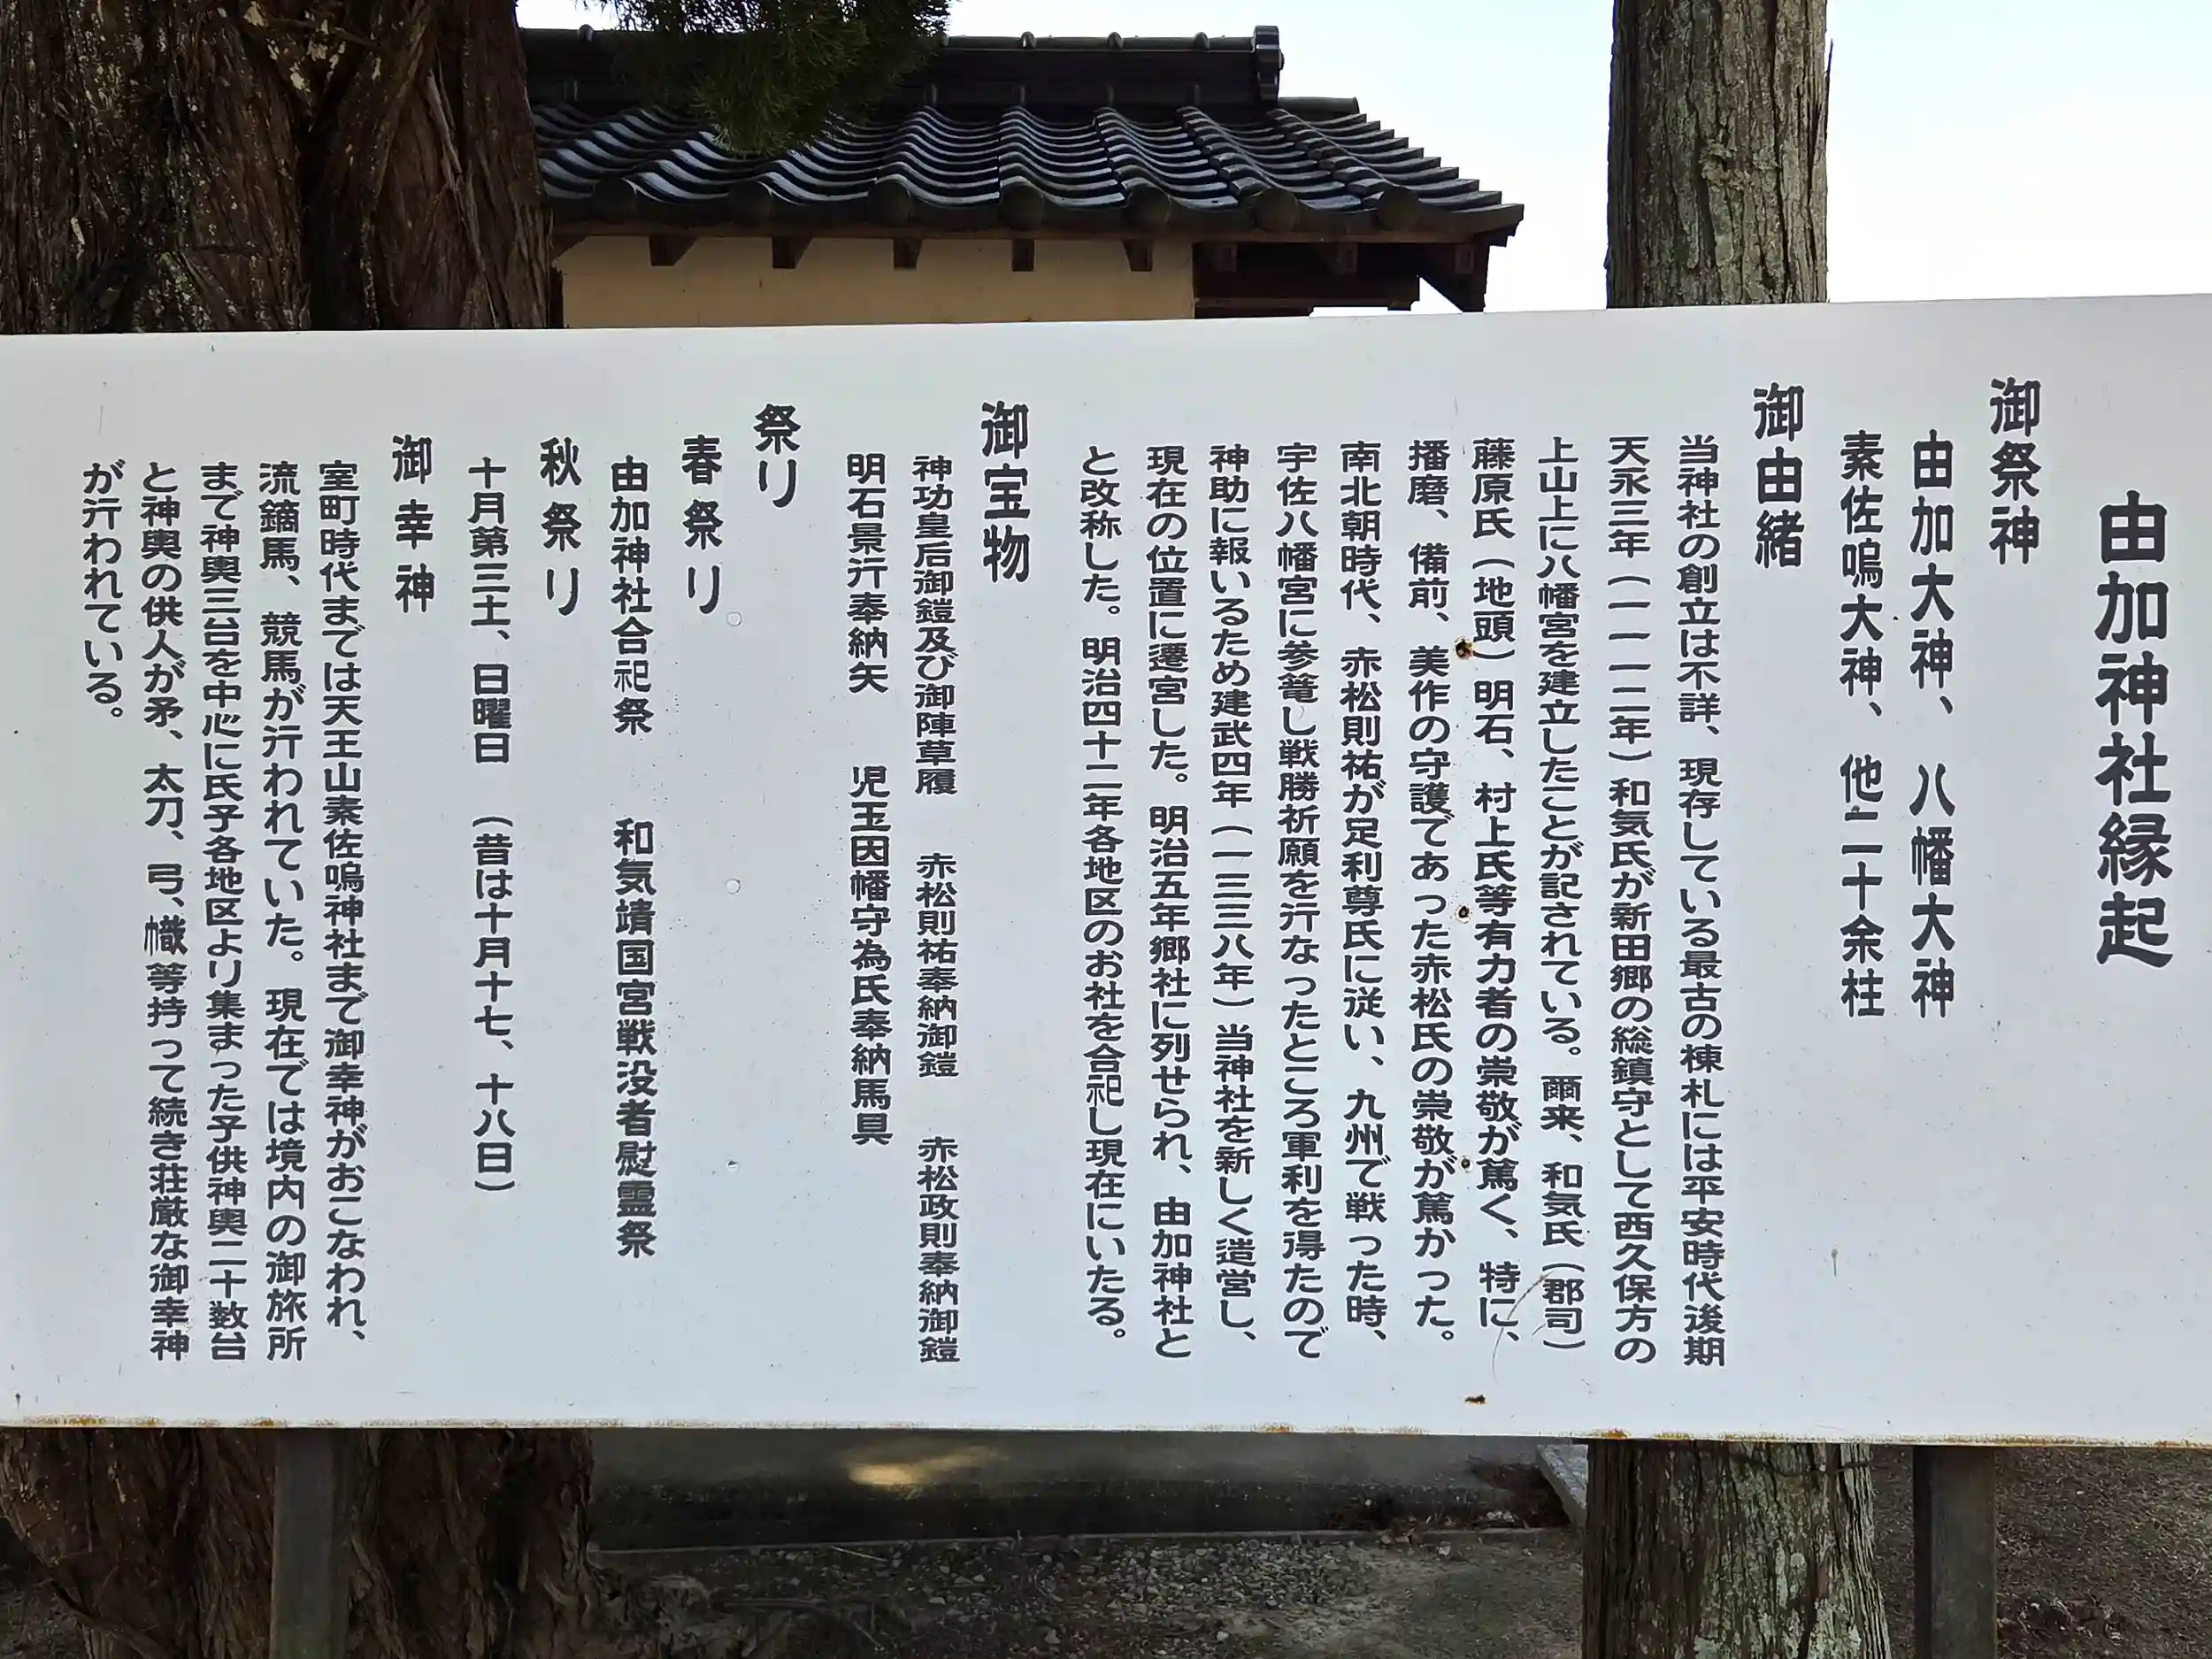 由加神社縁起
御祭神
由加大神、八幡大神
素佐嗚大神、他二十余柱
御由緒
当神社の創立は不詳、現存している最古の棟札には平安時代後期
天永三年（一一一二年）和気氏が新田郷の総鎮守として西久保方の
上山上に八幡宮を建立したことが記されている。爾来、和気氏（郡司）
藤原氏（地頭）明石、村上氏等有力者の崇敬が篤く、特に、
播磨、備前、美作の守護であった赤松氏の崇敬が篤かった。
南北朝時代、赤松則祐が足利尊氏に従い、九州で戦った時、
宇佐八幡宮に参篭し戦勝祈願を行なったところ軍利を得たので
神助に報いるため建武四年（一三三八年）当神社を新しく造営し、
現在の位置に遷宮した。明治五年郷社に列せられ、由加神社と
と改称した。明治四十二年各地区のお社を合祀し現在にいたる。
御宝物
神功皇后御鎧及び御陣草履　赤松則祐奉納御鎧　赤松政則奉納御鎧
明石景行奉納矢　児玉因幡守為氏奉納馬具
祭り
春祭り
由加神社合祀祭　和気靖国宮戦没者慰霊祭
秋祭り
十月第三土、日曜日　（昔は十月十七、十八日）
御幸神
室町時代までは天王山素佐嗚神社まで御幸神がおこなわれ、
流鏑馬、競馬が行われていた。現在では境内の御旅所
まで神輿三台を中心に氏子各地区より集まった子供神輿二十数台
と神輿の供人が矛、太刀、弓、幟等持って続き荘厳な御幸神
が行われている。